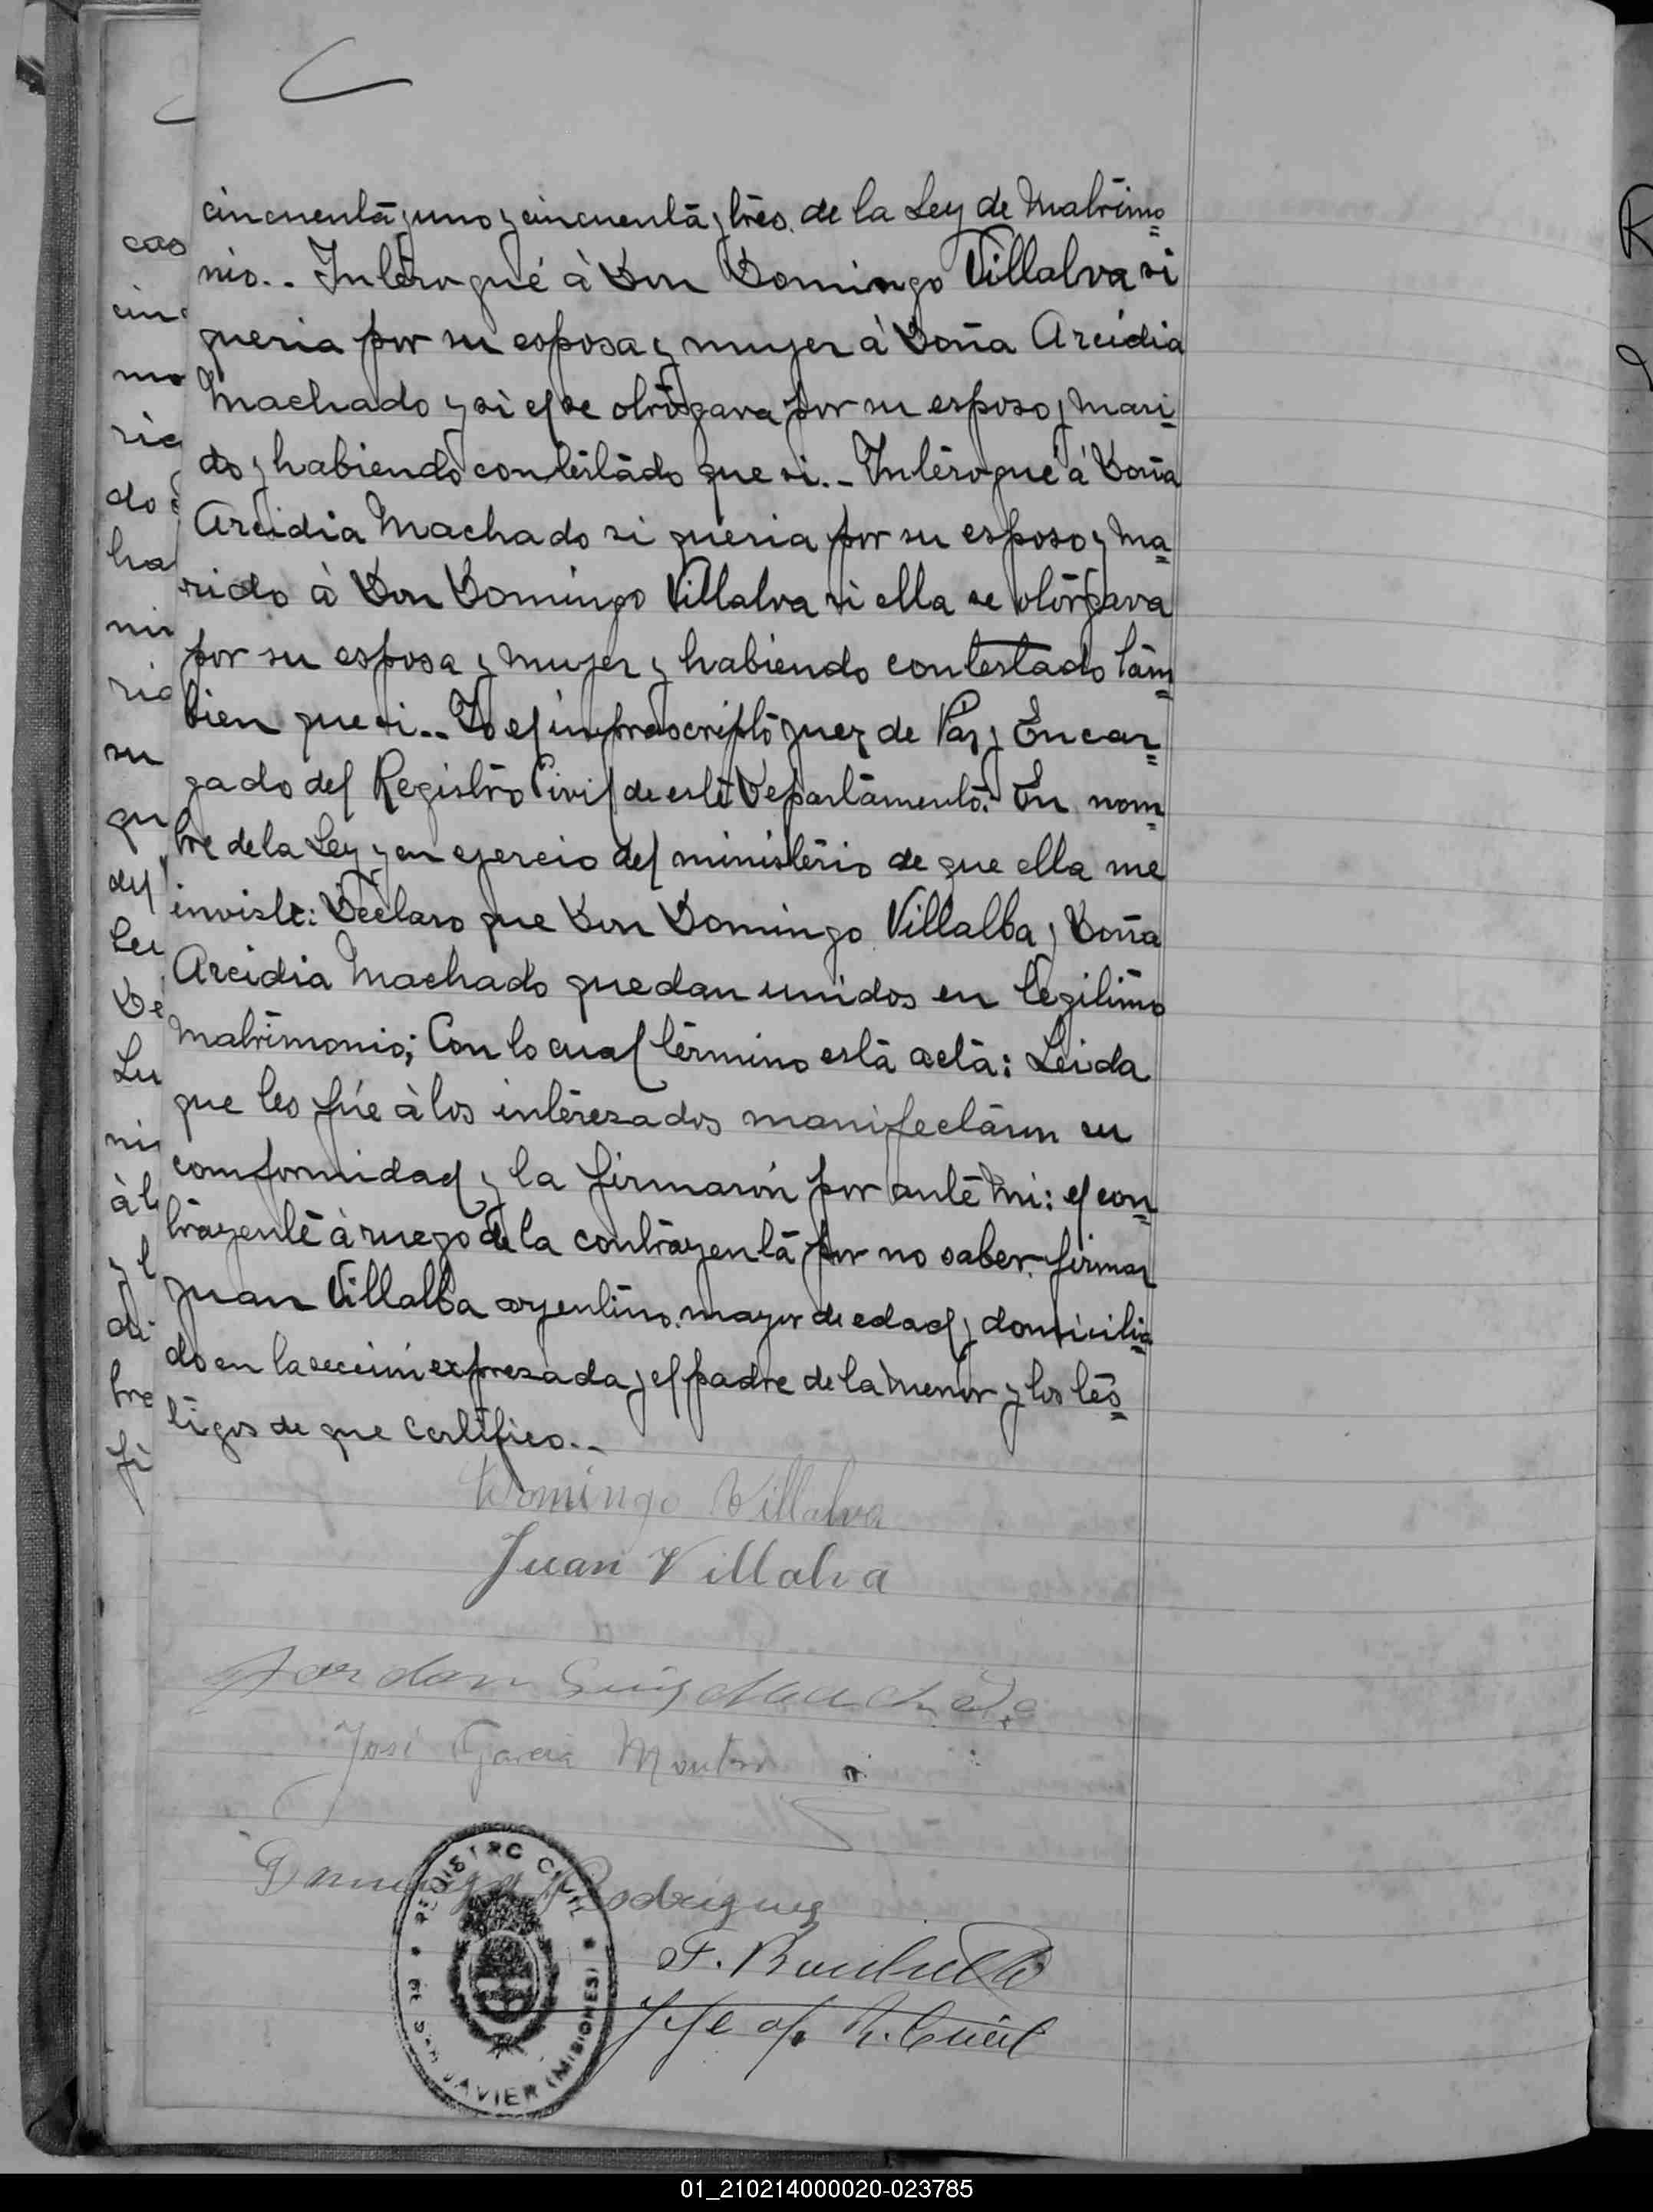 cincuenta y uno y cincuenta y tres de la Ley de Matrimo=
nio.. Interogué à Don Domingo Villalva si
queria por su esposa y mujer à Doña Arcidia
Machado y si el se otorgava por su esposo y mari=
do y habiendo contestado que si.- Interogué à Doña
Arcidia Machado si queria por su esposo y ma=
rido à Don Domingo Villalva si ella se otorgava
por su esposa y mujer y habiendo contestado tam=
bien que si.. Yo el infrascripto Juez de Paz y Encar=
gado del Registro Civil de este Departamento: En nom=
bre de la Ley y en ejercio del ministerio de que ella me
inviste: Declaro que Don Domingo Villalba y Doña
Arcidia Machado quedan unidos en legitimo
Matrimonio; Con lo cual término esta acta: Leida
que les fúe à los interezados manifectáron su
comformidad y la firmarón por ante mi: el con=
trayente à ruego de la contrayenta por no saber firmar
Juan Villalba argentino mayor de edad y domicilia=
do en la seccion exprezada y el padre de la menor y los tes=
tigos de que certifico..
Domingo Villalva
Juan Villalva
Machado
José Garcia
Rodriguez
F.
Jefe of. R. Civil
REGISTRO CIVIL
DE SAN JAVIER (MISIONES)
cas
cin
mo
ria
do
ha
nir
ria
su
qu
del
Lei
De
Lu
ni
à l
y l
di
bre
fi
01_210214000020-023785